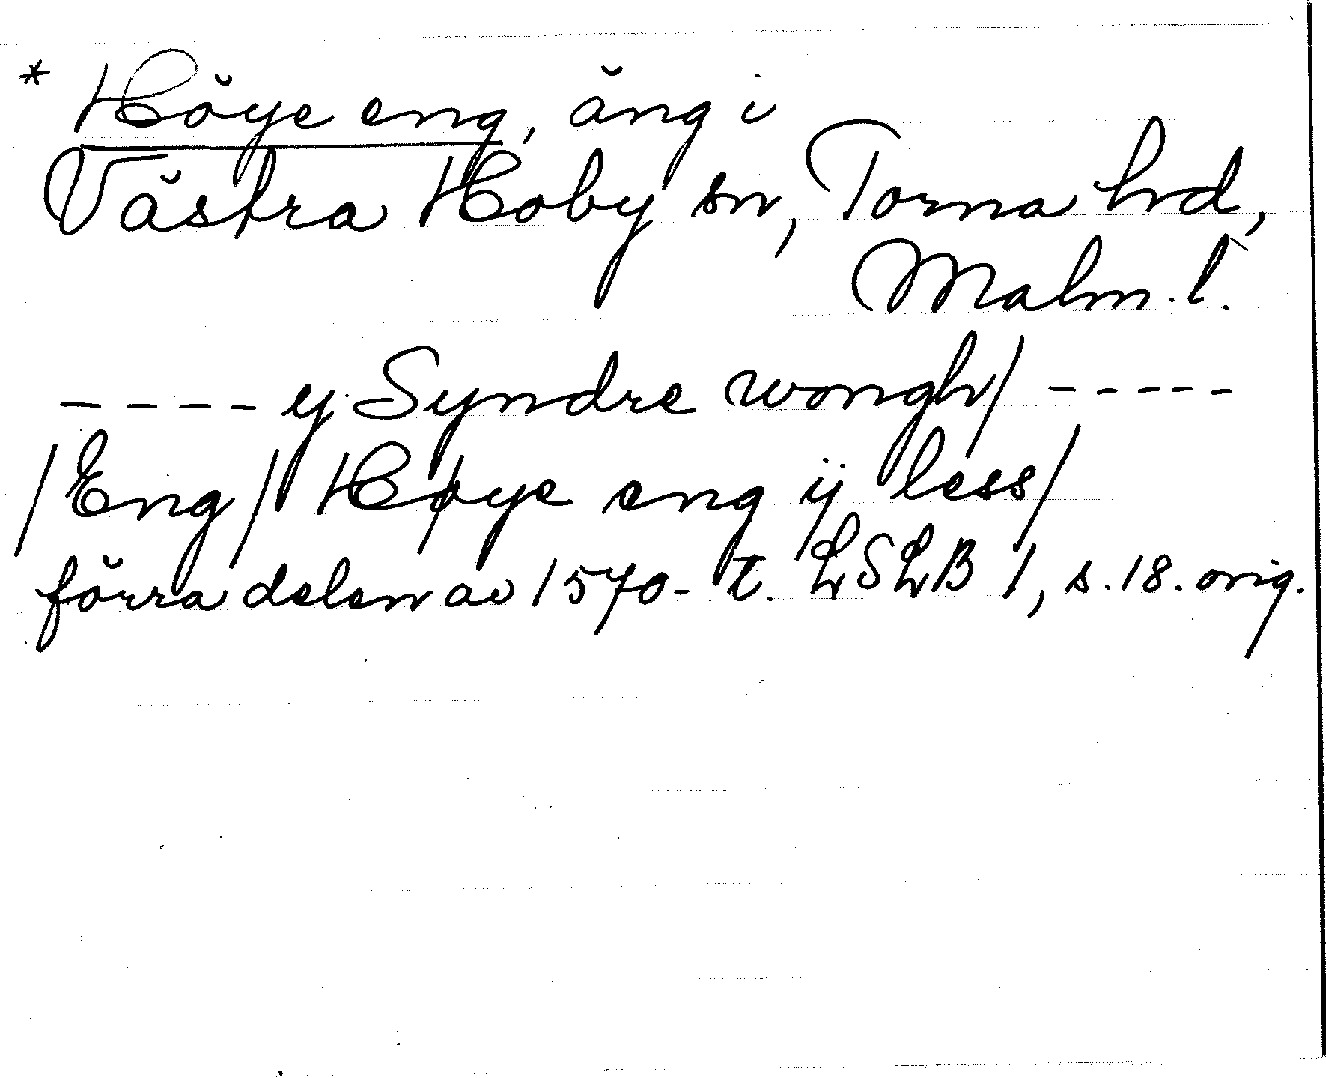 * Höye eng, äng i
Västra Hoby sn, Torna hd,
Malm. l.
---- y Syndre wongh/ -----
/Eng/ Høye eng ij less/
förra delen av 1570-t. LSLB 1, s. 18. orig.